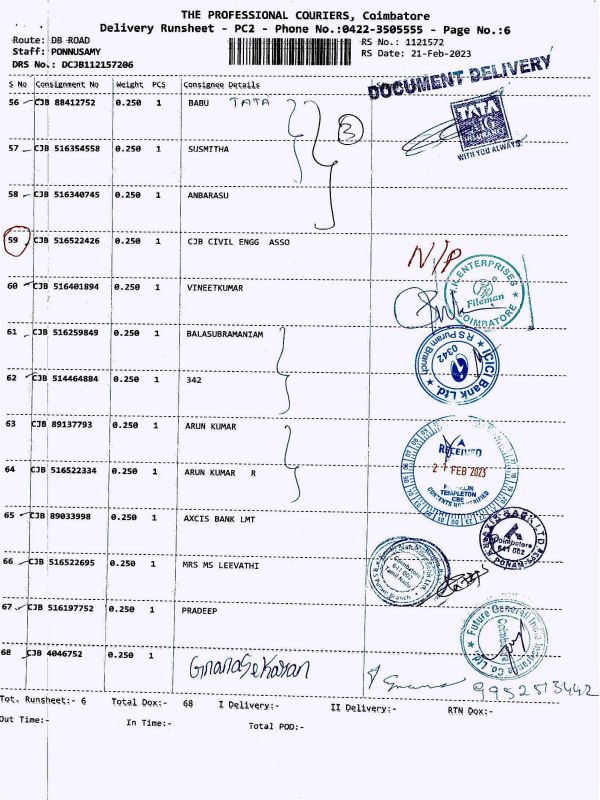 THE PROFESSIONAL COURIERS, Coimbatore
Delivery Runsheet - PC2 - Phone No.:0422-3505555 - Page No.:6
Route: DB ROAD RS No.: 1121572
Staff: PONNUSAMY RS Date: 21-Feb-2023
DRS No.: DCJB112157206
DOCUMENT DELIVERY
S No Consignment No Weight PCS Consignee Details
56 CJB 88412752 0.250 1 BABU TATA
3
TATA
AIG
INSURANCE
WITH YOU ALWAYS
57 CJB 516354558 0.250 1 SUSMITHA
58 CJB 516340745 0.250 1 ANBARASU
59 CJB 516522426 0.250 1 CJB CIVIL ENGG ASSO
N/P
60 CJB 516401894 0.250 1 VINEETKUMAR
ENTERPRISES
Fileman
COIMBATORE
61 CJB 516259849 0.250 1 BALASUBRAMANIAM
ICICI Bank Ltd.
R S Puram Branch
0342
62 CJB 514464884 0.250 1 342
63 CJB 89137793 0.250 1 ARUN KUMAR
RECEIVED
21 FEB 2023
TEMPLETON
CBE
CONTENTS NOT VERIFIED
64 CJB 516522334 0.250 1 ARUN KUMAR R
65 CJB 89033998 0.250 1 AXCIS BANK LMT
BANK LTD
Coimbatore
641 002
66 CJB 516522695 0.250 1 MRS MS LEEVATHI
Coimbatore
641 002
Tamil Nadu
Branch
67 CJB 516197752 0.250 1 PRADEEP
Future Generali India Insurance Co. Ltd.
Coimbatore
68 CJB 4046752 0.250 1 GnanaSekaran
9952513442
Tot. Runsheet:- 6 Total Dox:- 68 I Delivery:- II Delivery:- RTN Dox:-
Out Time:- In Time:- Total POD:-